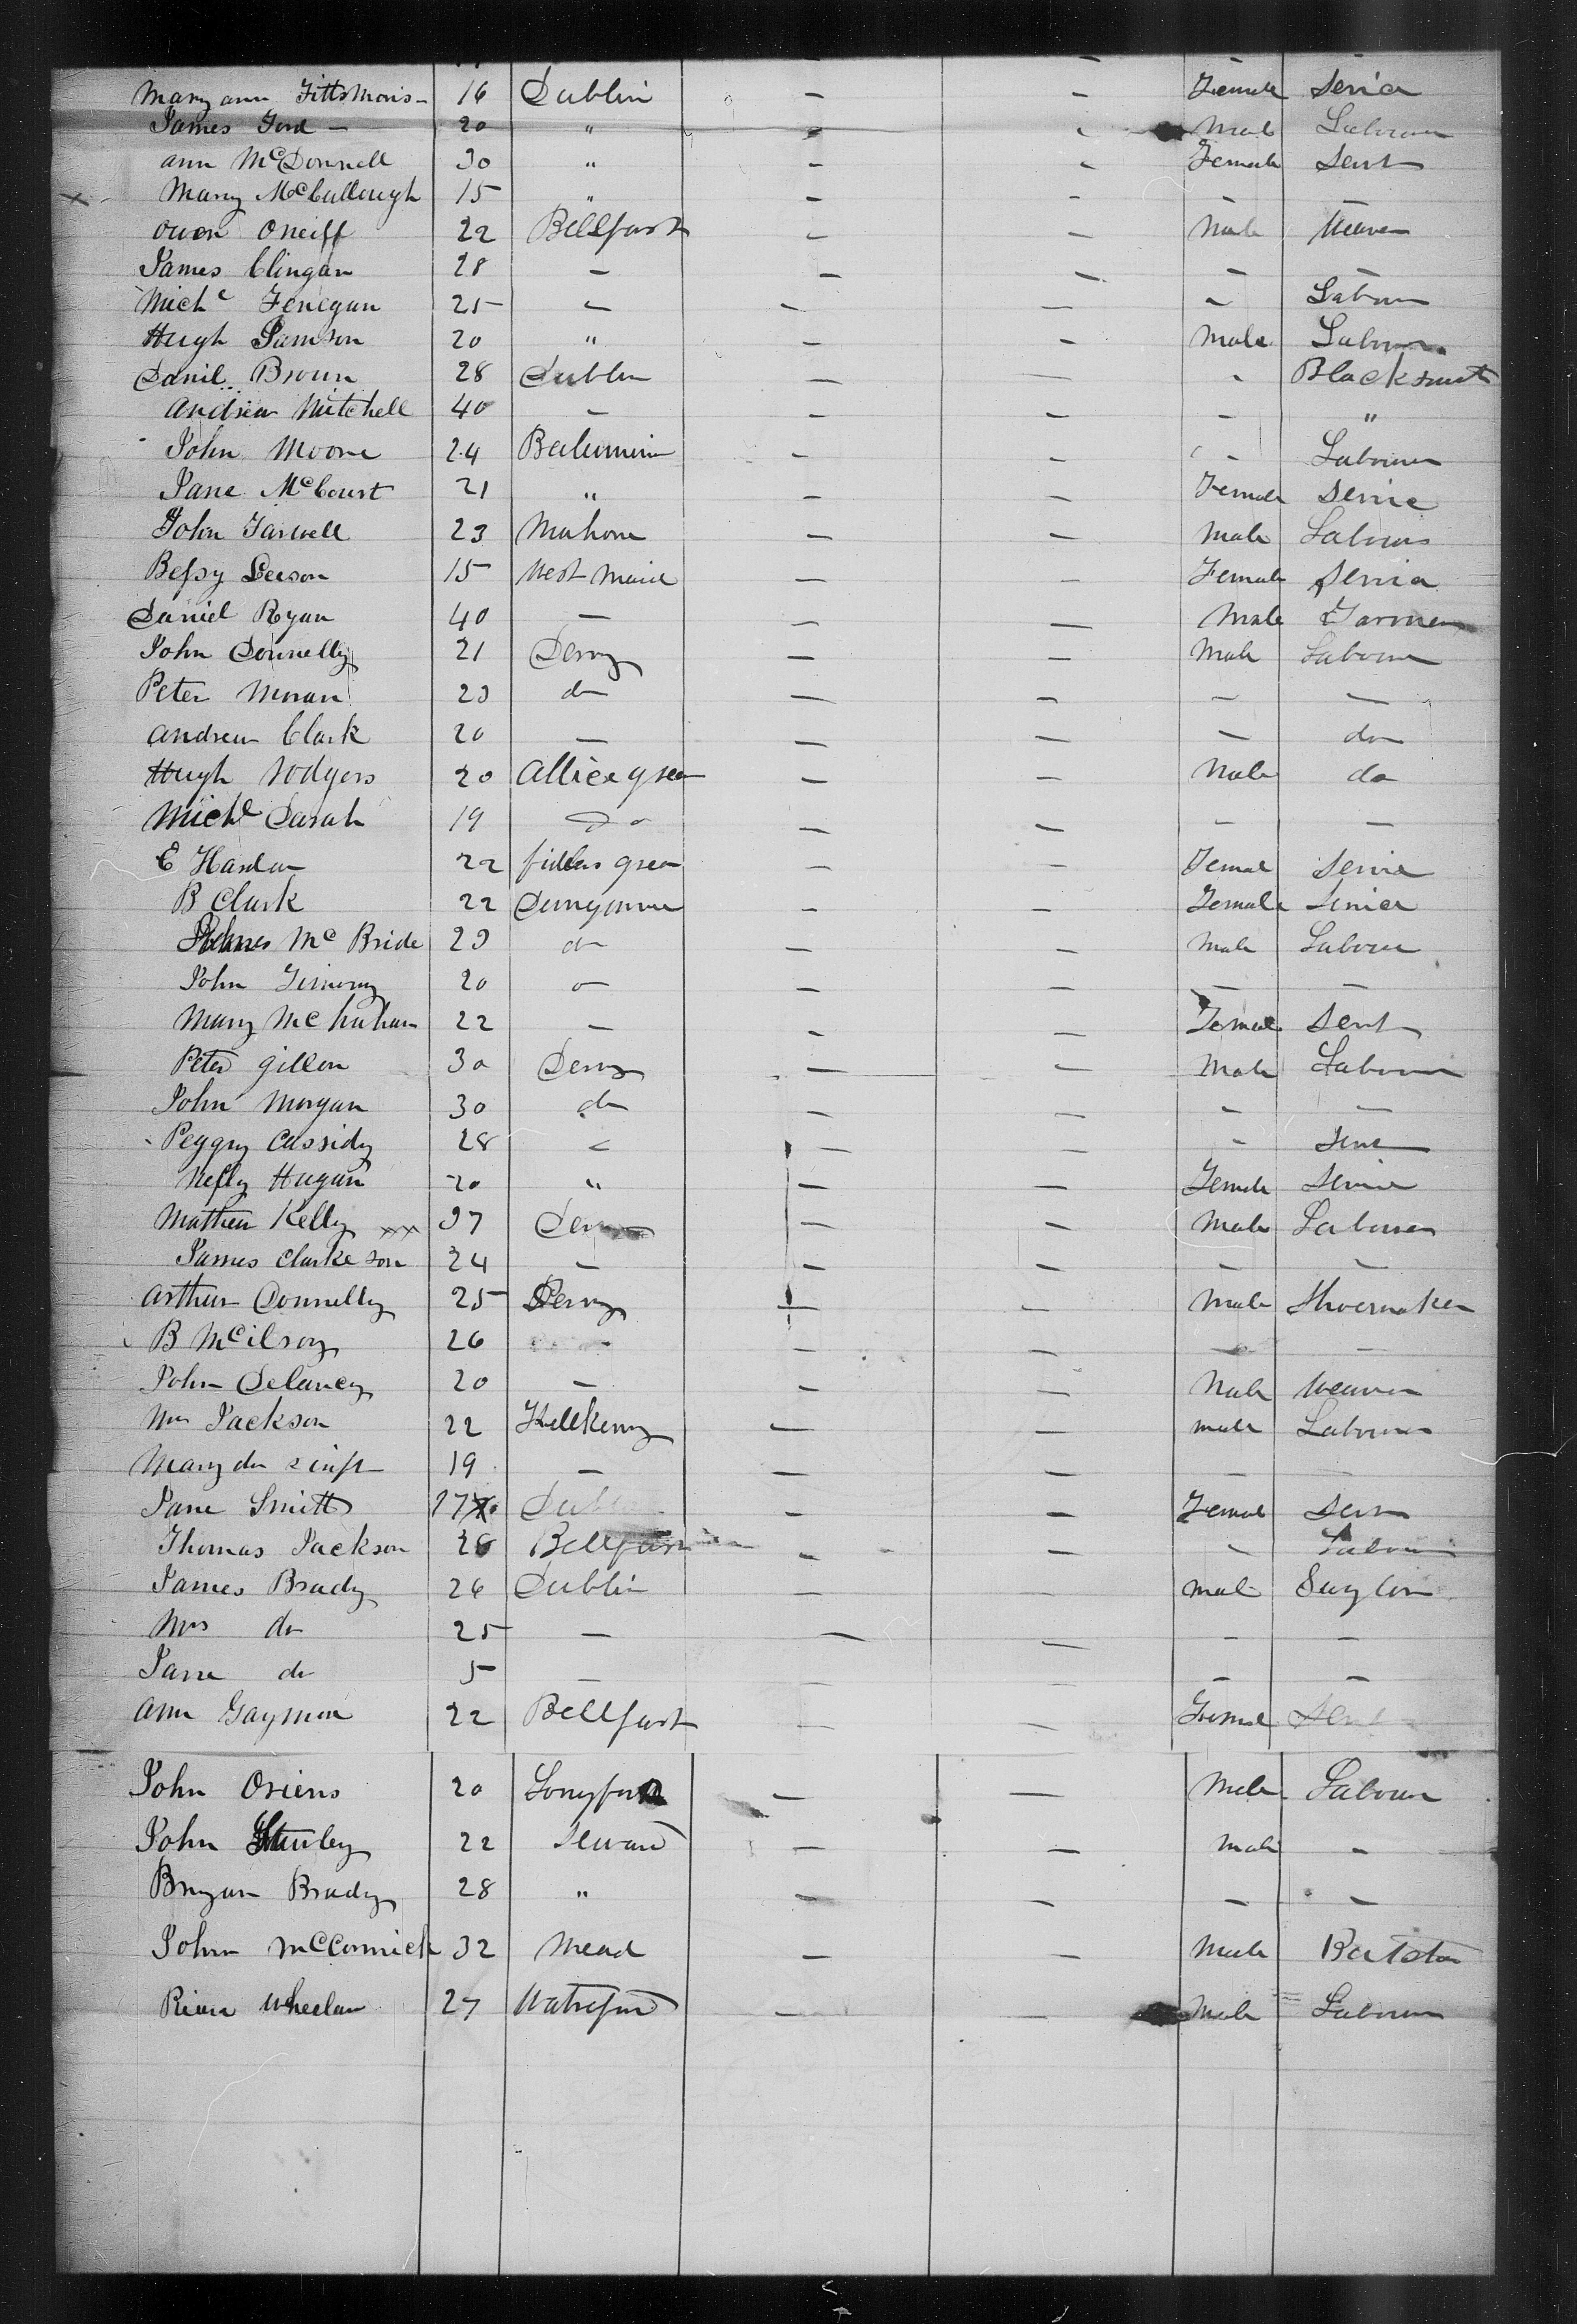 Mary ann Fittsmoris - 16 Dublin — — Female Servia
James Ford — 20 " — — Male Labour
ann McDonnell 30 " — — Female Servt
Mary McCullough 15 " — —
owen Oneill 22 Bellfast — — Male Weaver
James Clingan 28 — — — — —
Michl Fenegan 25 — — — — Labour
Hugh Jamison 20 " — — Male Labour
Danil Brown 28 Dublin — — " Blacksmit
Andrew Mitchell 40 — — — — "
John Moore 24 — — — Labour
Jane McCourt 21 " — — Female Servic
John Farwell 23 Mahone — — Male Labour
Bessy Leeson 15 West Maid — — Female Servia
Daniel Ryan 40 — — — Male Farmer
John Donnelly 21 Derry — — Male Labour
Peter Moran 23 do — — — —
Andrew Clark 20 — — — — do
Hugh Rodgers 20 — — Male do
Michl Darah 19 Do — — — —
E Harden 22 fidlers green — — Femal Servic
B Clark 22 — — Female Servic
James Mc Bride 23 do — — Male Labour
John 20 — — — —
Mary McMahan 22 — — — Female Servt
Peter Gillon 30 Derry — — Male Labour
John Morgan 30 do — — — —
Peggy Cassidy 28 — — — — Servt
Nelly Hagan 20 " — — Female Servic
Mathew Kelly xxx 37 Derry — — Male Labour
James Clarke son 24 — — — — —
Arthur Donnelly 25 Derry — — Male Shoemaker
B McIlroy 26 — — — —
John Delaney 20 — — — Male Weaver
Wm Jackson 22 Killkenny — — Male Labour
Mary do & inft 19 — — — — —
Jane Smitts 27 Dublin — — Femal Servt
Thomas Jackson 28 Bellfast — — — Labour
James Brady 26 Dublin — — Male
Mrs do 25 — — — — —
Jane do 5 — — — — —
Ann Gaymon 22 Bellfast — — Femal Servt
John Oriens 20 Longford — — Male Labour
John 22 — — Male -
Bryan Brady 28 " — — — —
John McCormick 32 Mead — — Male
Whelan 27 Watreford — — Male Labour